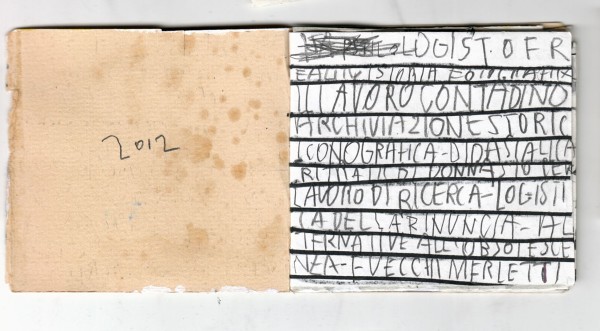 2012
LOGIST.O F R
EALIVISTORIA FOTOGRAFIA
IL LAVORO CONTADINO
ARCHIVIAZIONE STORIC
ICONOGRAFICA-DIDASCALICA
RITRATTI DI DONNA
LAVORO DI RICERCA-LOGISTI
CA DEL
TERNATIVE ALL'OBSOLESCE
NZA-I VECCHI MERLETTI